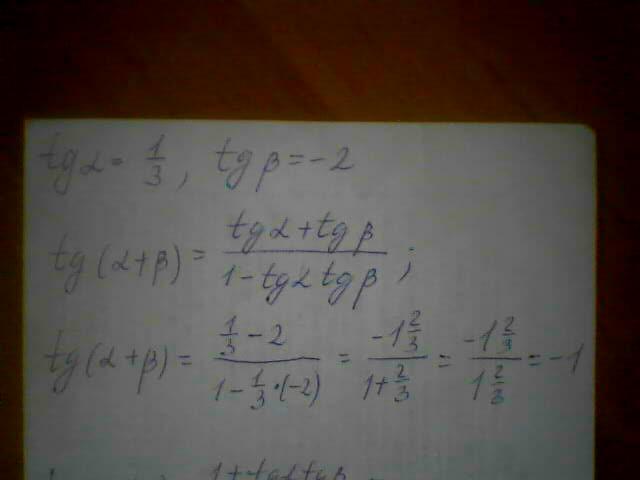 tg α = 1/3, tg β = -2
tg (α+β) = (tg α + tg β)/(1 - tg α tg β);
tg (α+β) = (1/3 - 2)/(1 - 1/3 · (-2)) = (-1 2/3)/(1 + 2/3) = (-1 2/3)/(1 2/3) = -1
1 + tg α tg β